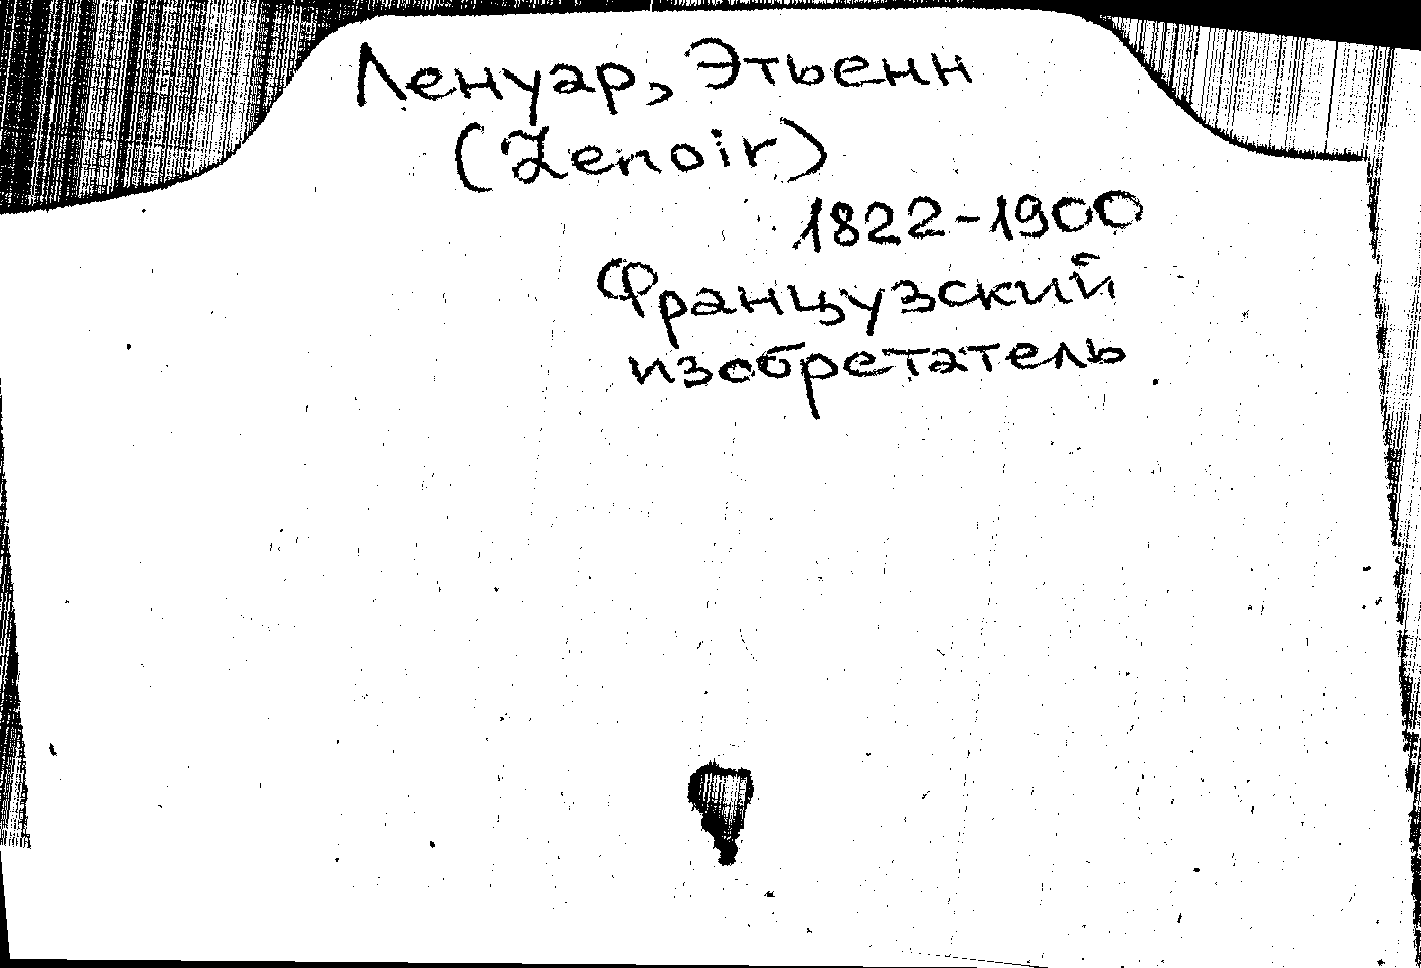 Ленуар, Этьенн
(Lenoir)
1822-1900
Французский
изобретатель